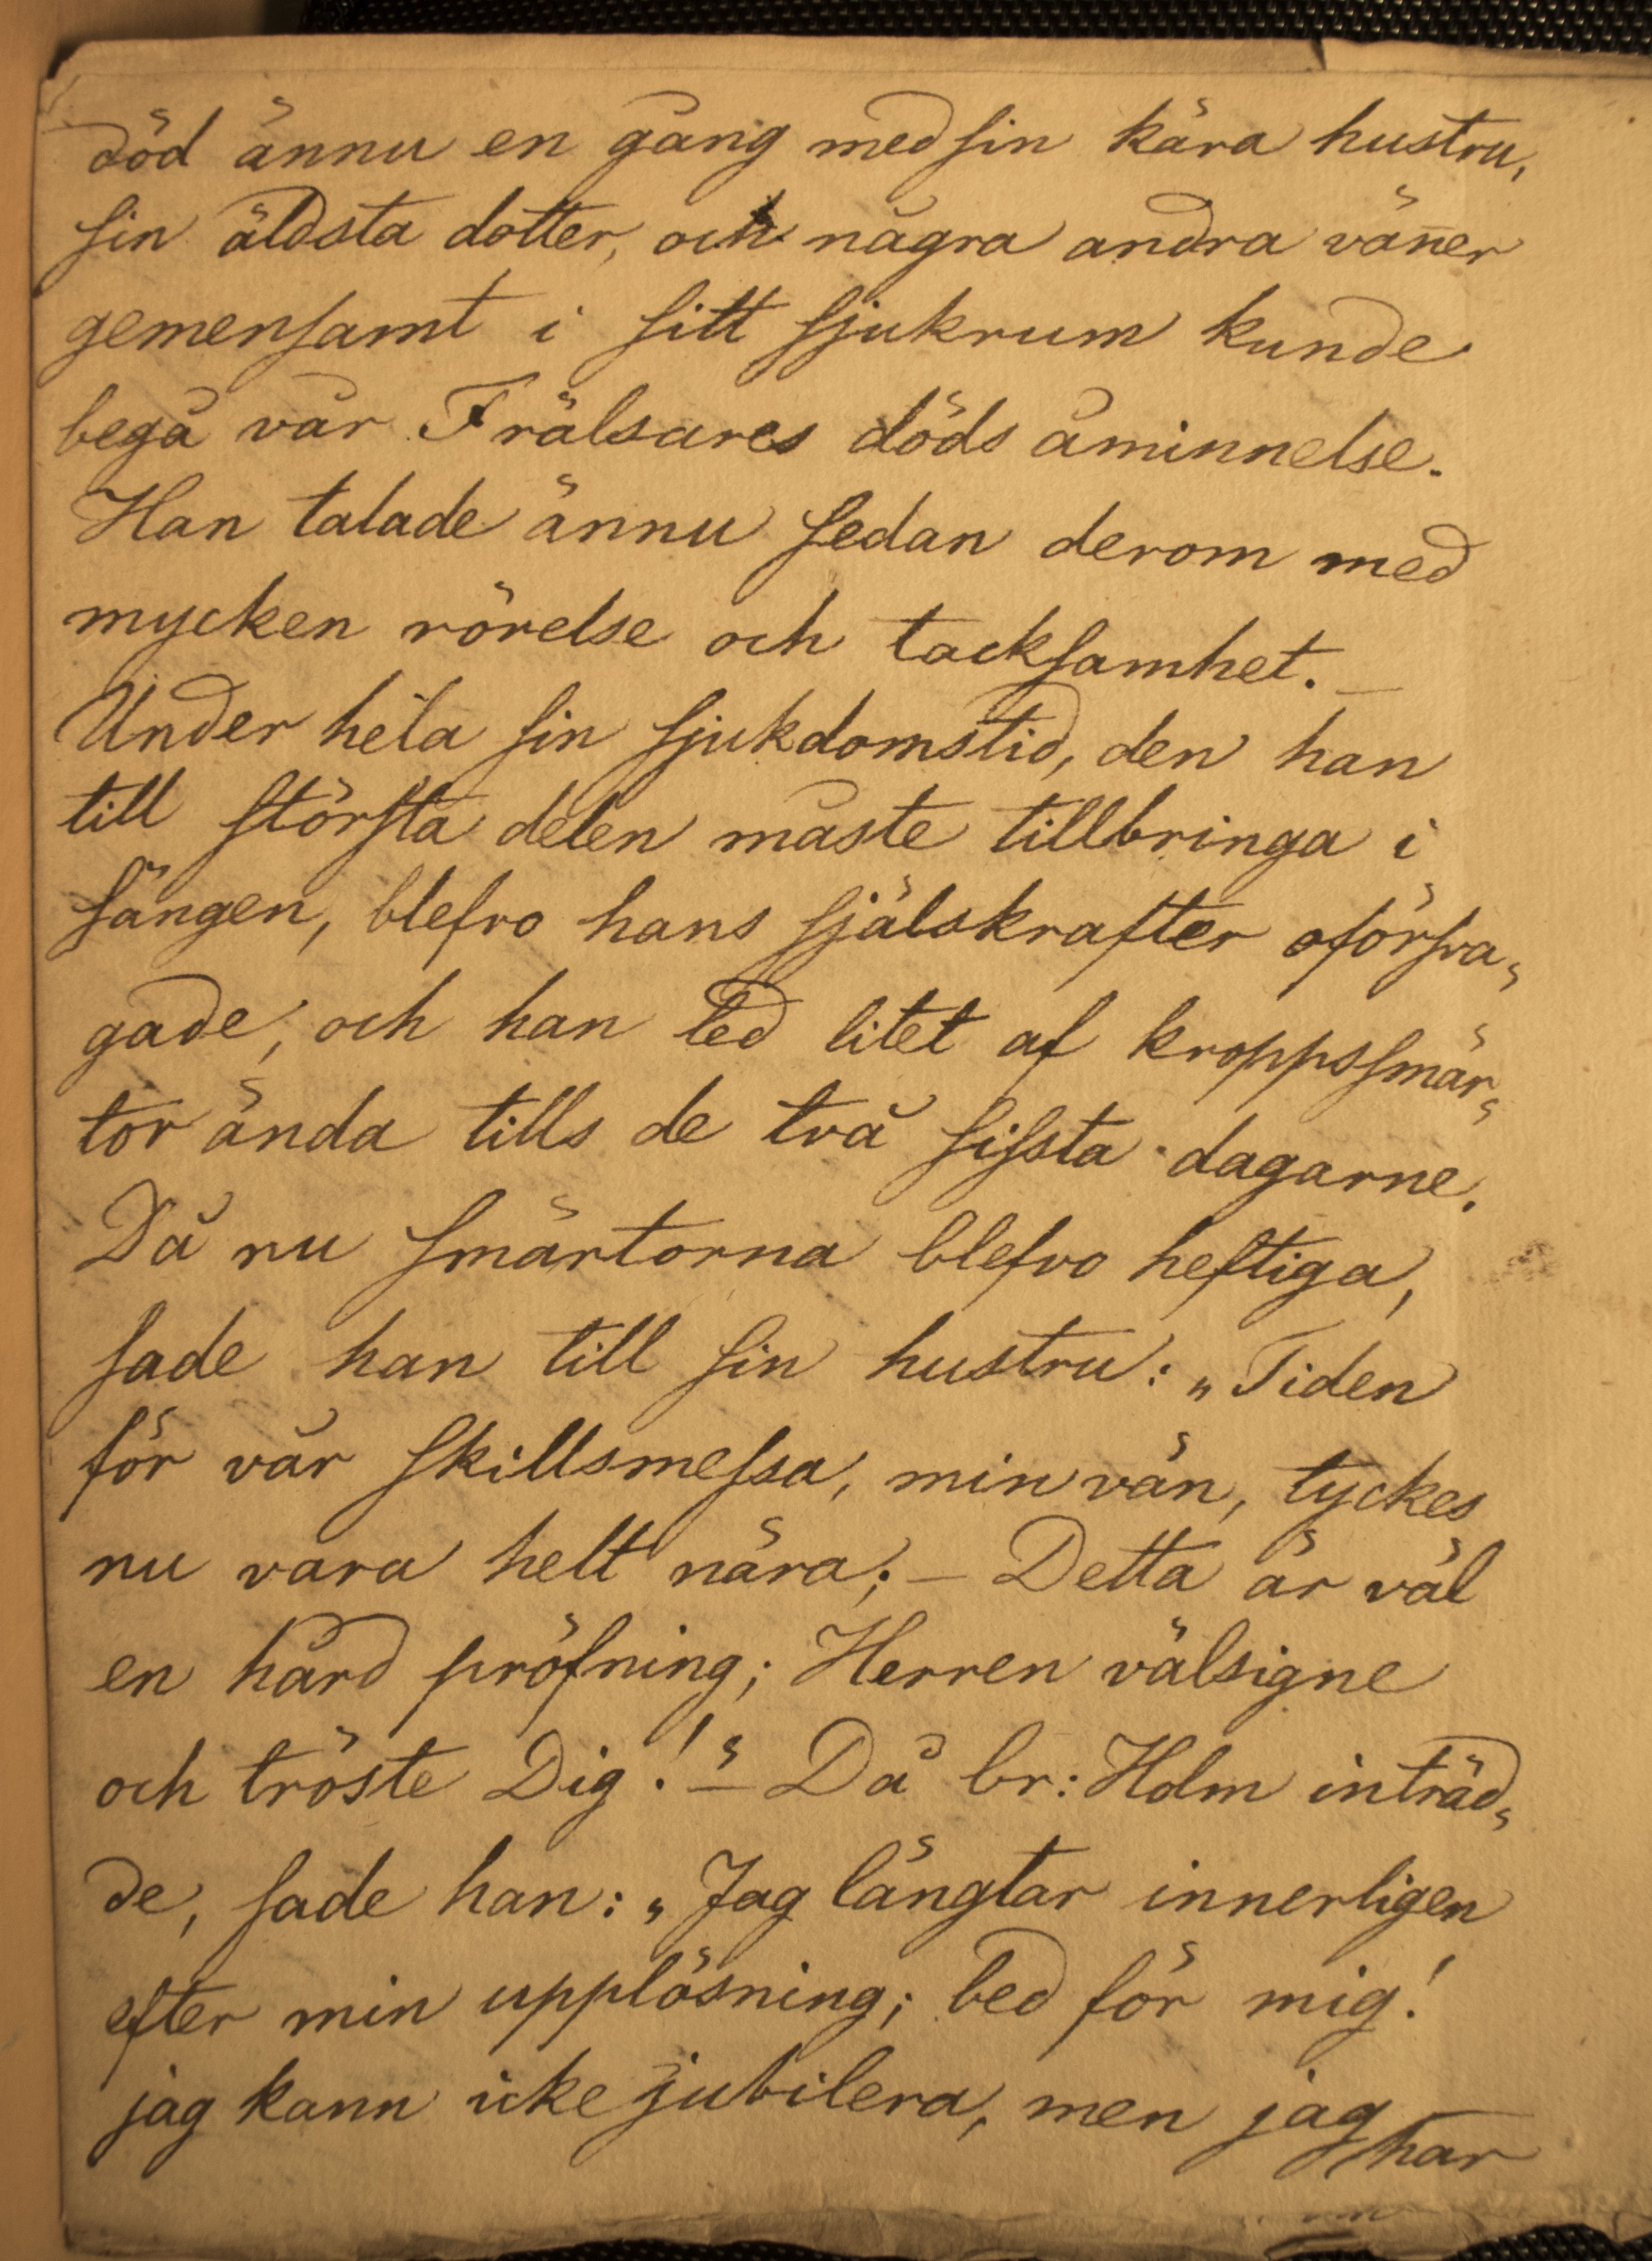 död ännu en gång med sin kära hustru,
sin äldsta dotter, och några andra väner
gemensamt i sitt sjukrum kunde
begå vår Frälsares döds åminnelse.
Han talade ännu sedan derom med
mycken rörelse och tacksamhet. –
Under hela sin sjukdomstid, den han
till största delen måste tillbringa i
sängen, blefvo hans själskrafter oförsva„
gade, och han led litet af kroppssmär„
tor ända tills de två sissta dagarne.
Då nu smärtorna blefvo heftiga,
sade han till sin hustru: „Tiden
för vår skillsmessa, min vän, tyckes
nu vara helt nära; – Detta är väl
en hård pröfning; Herren välsigne
och tröste Dig!“ – Då br: Holm inträd„
de, sade han: „Jag längtar innerligen
efter min upplösning; bed för mig!
jag kann icke jubilera, men jag
har